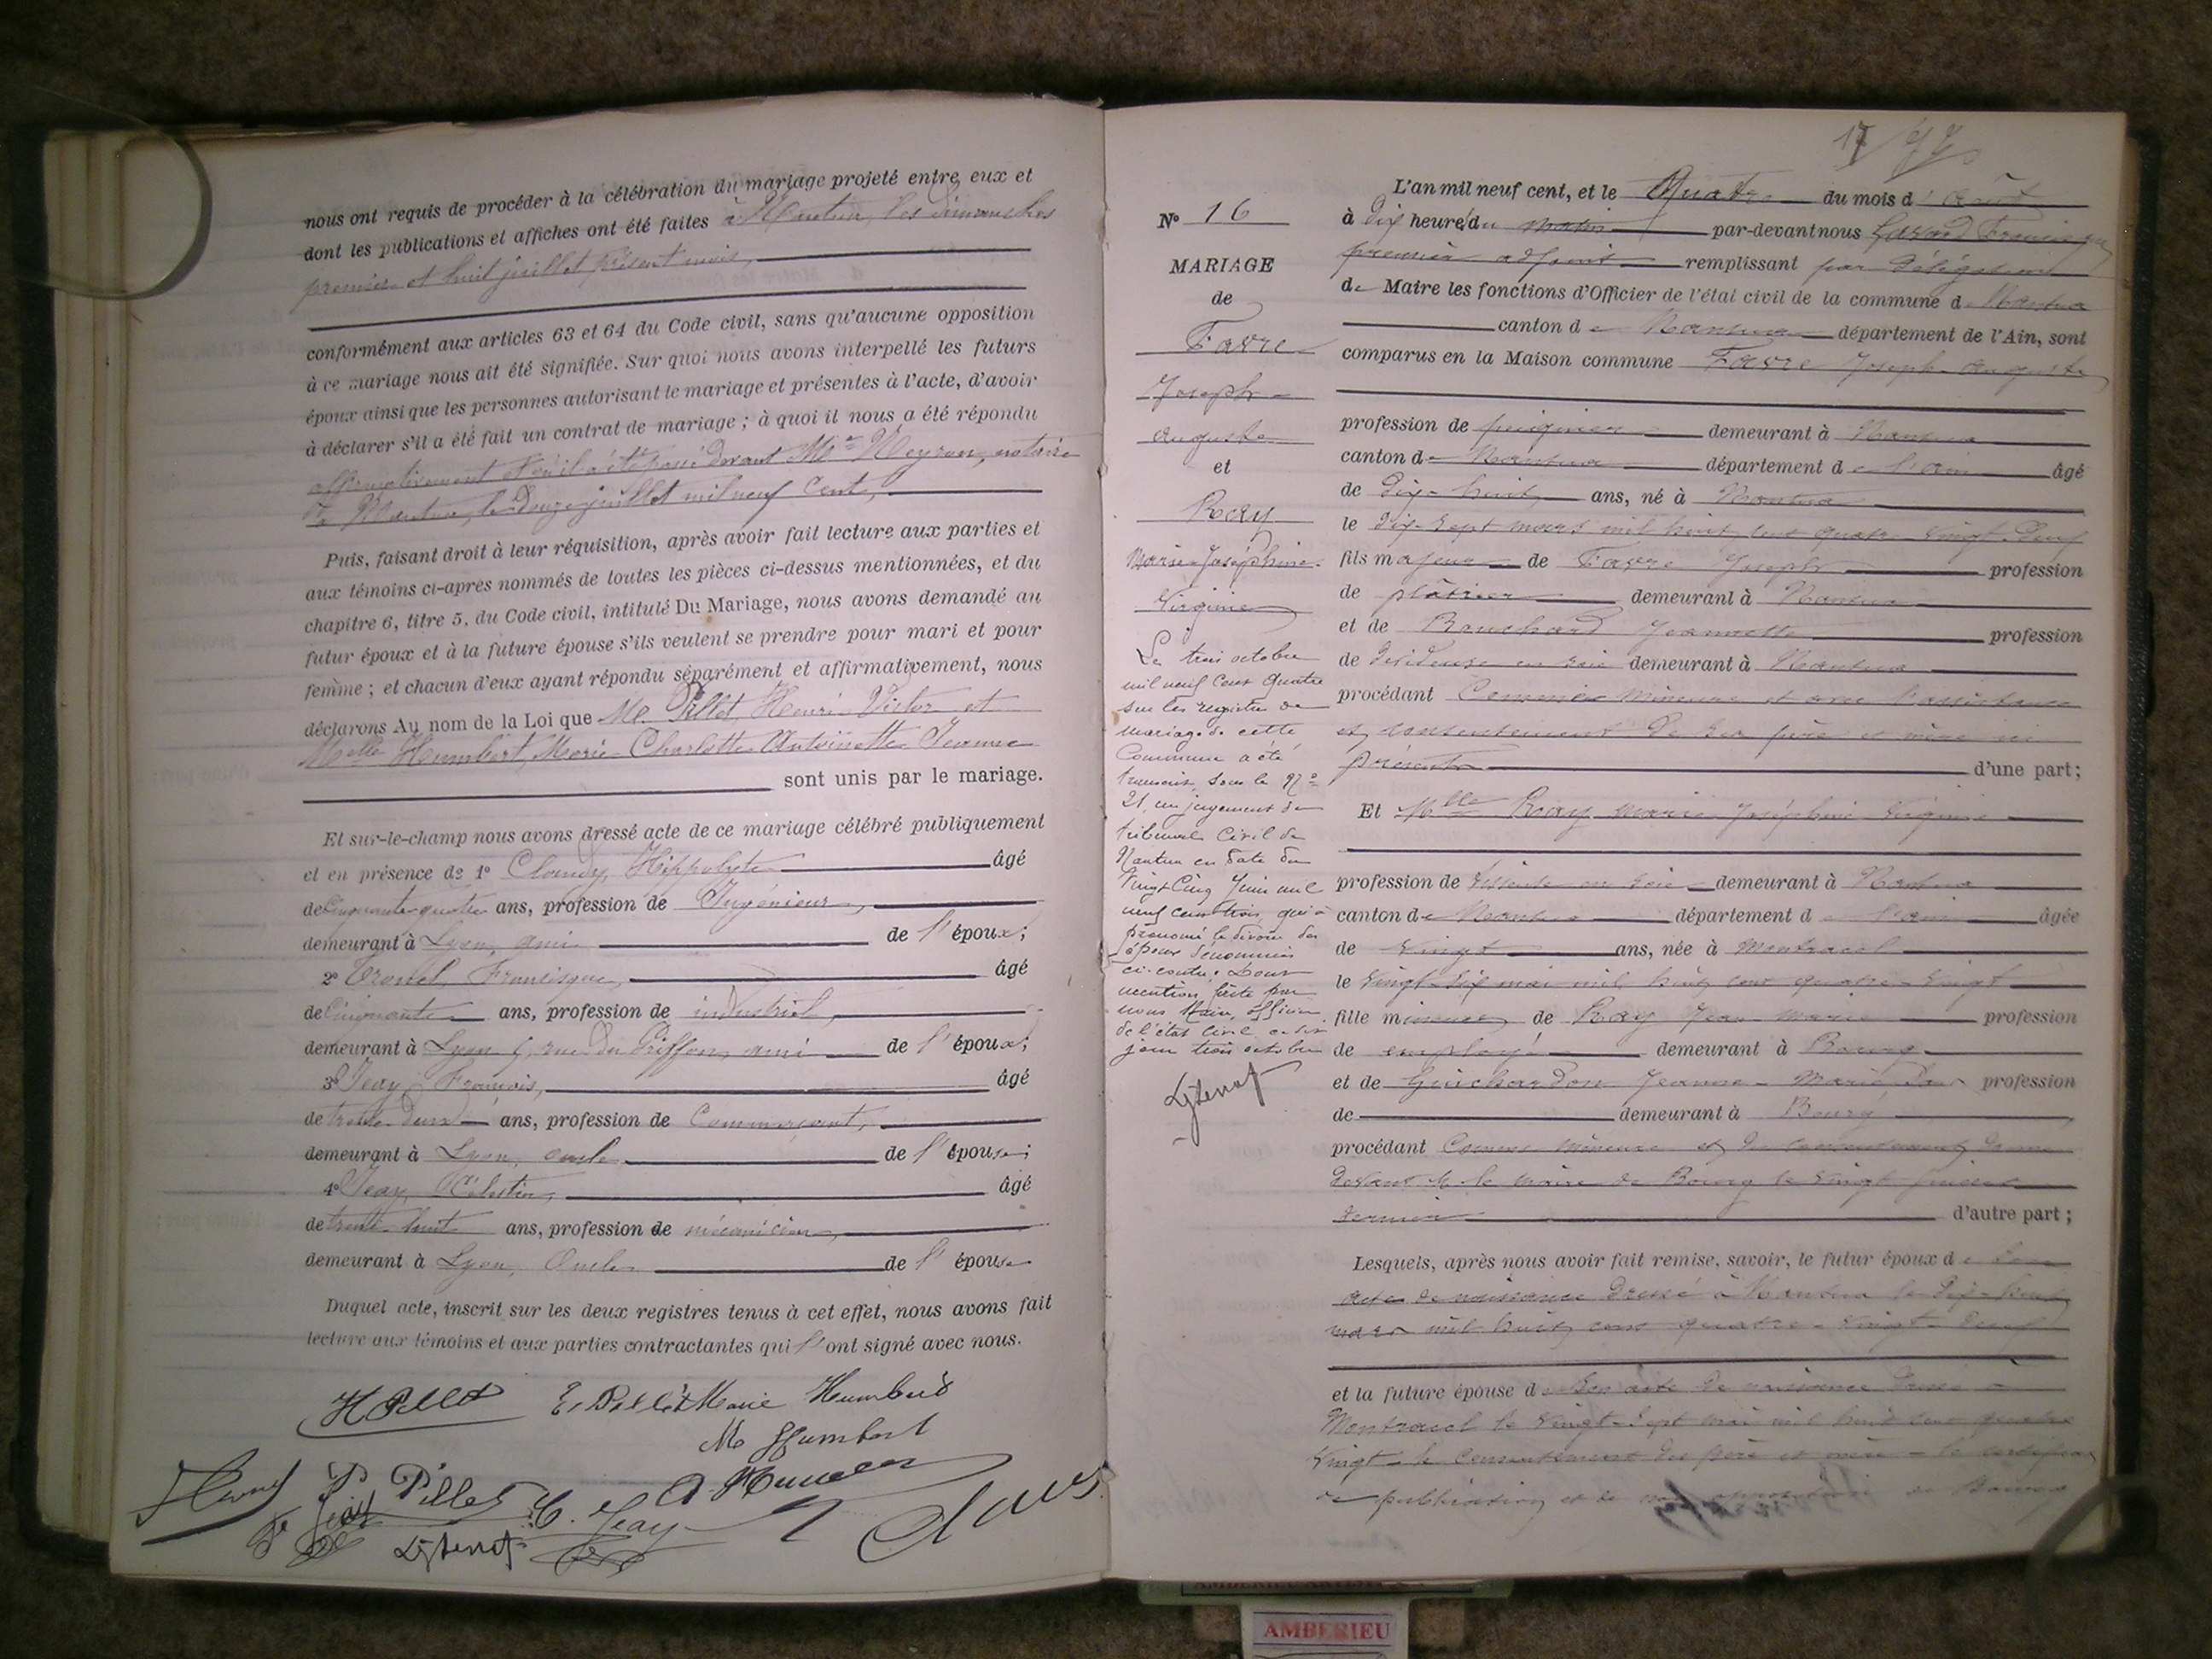 nous ont requis de procéder à la célébration du mariage projeté entre eux et
dont les publications et affiches ont été faites à Nantua, les dimanches
premier et huit juillet présent mois,
conformément aux articles 63 et 64 du Code civil, sans qu'aucune opposition
à ce mariage nous ait été signifiée. Sur quoi nous avons interpellé les futurs
époux ainsi que les personnes autorisant le mariage et présentes à l'acte, d'avoir
à déclarer s'il a été fait un contrat de mariage ; à quoi il nous a été répondu
affirmativement et qu'il a été passé devant Me Meyron, notaire
à Nantua, le douze juillet mil neuf cent,
Puis, faisant droit à leur réquisition, après avoir fait lecture aux parties et
aux témoins ci-après nommés de toutes les pièces ci-dessus mentionnées, et du
chapitre 6, titre 5, du Code civil, intitulé Du Mariage, nous avons demandé au
futur époux et à la future épouse s'ils veulent se prendre pour mari et pour
femme ; et chacun d'eux ayant répondu séparément et affirmativement, nous
déclarons Au nom de la Loi que Mr Pillet, Henri-Victor et
Melle Humbert, Marie-Charlotte-Antoinette-Jeanne
sont unis par le mariage.
Et sur-le-champ nous avons dressé acte de ce mariage célébré publiquement
et en présence de 1° Claudy, Hippolyte âgé
de Cinquante-quatre ans, profession de Ingénieur,
demeurant à Lyon, ami de l'époux;
2° Tronel, Francisque, âgé
de Cinquante ans, profession de industriel,
demeurant à Lyon, rue du Griffon, ami de l'époux;
3° Jeay, François, âgé
de trente-deux ans, profession de Commerçant,
demeurant à Lyon, oncle de l'épouse;
4° Jeay, Célestin, âgé
de trente-huit ans, profession de mécanicien,
demeurant à Lyon, Oncle de l'épouse
Duquel acte, inscrit sur les deux registres tenus à cet effet, nous avons fait
lecture aux témoins et aux parties contractantes qui l'ont signé avec nous.
H Pillet E. Pillet Marie Humbert
M Humbert
P Pillet C. Jeay
17
N° 16
MARIAGE
de
Favre
Joseph
Auguste
et
Ray
Marie-Joséphine
Virginie
Le trois octobre
mil neuf cent quatre
sur les registres de
mariage de cette
Commune a été
transcrit, sous le No
21, un jugement du
tribunal Civil de
Nantua en date du
Vingt Cinq Juin mil
neuf cent trois, qui a
prononcé le divorce des
époux dénommés
ci-contre. Dont
mention faite par
nous Maire, officier
de l'état civil ce dit
jour trois octobre
L'an mil neuf cent, et le Quatre du mois d'Août
à dix heures du matin par-devant nous Favard
premier adjoint remplissant par délégation
de Maire les fonctions d'Officier de l'état civil de la commune de Nantua
canton de Nantua département de l'Ain, sont
comparus en la Maison commune Favre Joseph Auguste
profession de peignier demeurant à Nantua
canton de Nantua département de l'Ain âgé
de dix-huit ans, né à Nantua
le dix-sept mars mil huit cent quatre vingt deux
fils majeur de Favre Joseph profession
de plâtrier demeurant à Nantua
et de Bouchard Jeannette profession
de dévideuse en soie demeurant à Nantua
procédant Comme mineur et avec l'assistance
et consentement de ses père et mère ici
présents d'une part;
Et Melle Ray Marie Joséphine Virginie
profession de tisseuse en soie demeurant à Nantua
canton de Nantua département de l'Ain âgée
de vingt ans, née à Montracol
le vingt-six mai mil huit cent quatre-vingt
fille mineure de Ray Jean Marie profession
de employé demeurant à Bourg
et de Guichardon Jeanne-Marie profession
de demeurant à Bourg
procédant Comme mineure et du consentement
devant M. le Maire de Bourg le vingt
dernier d'autre part ;
Lesquels, après nous avoir fait remise, savoir, le futur époux de son
acte de naissance dressé à Nantua le dix-huit
mars mil huit cent quatre-vingt deux
et la future épouse de son acte de naissance dressé à
Montracol le vingt-sept mai mil huit cent quatre
vingt - le consentement des père et mère - le certificat
de publication et de non opposition de Bourg
AMBERIEU